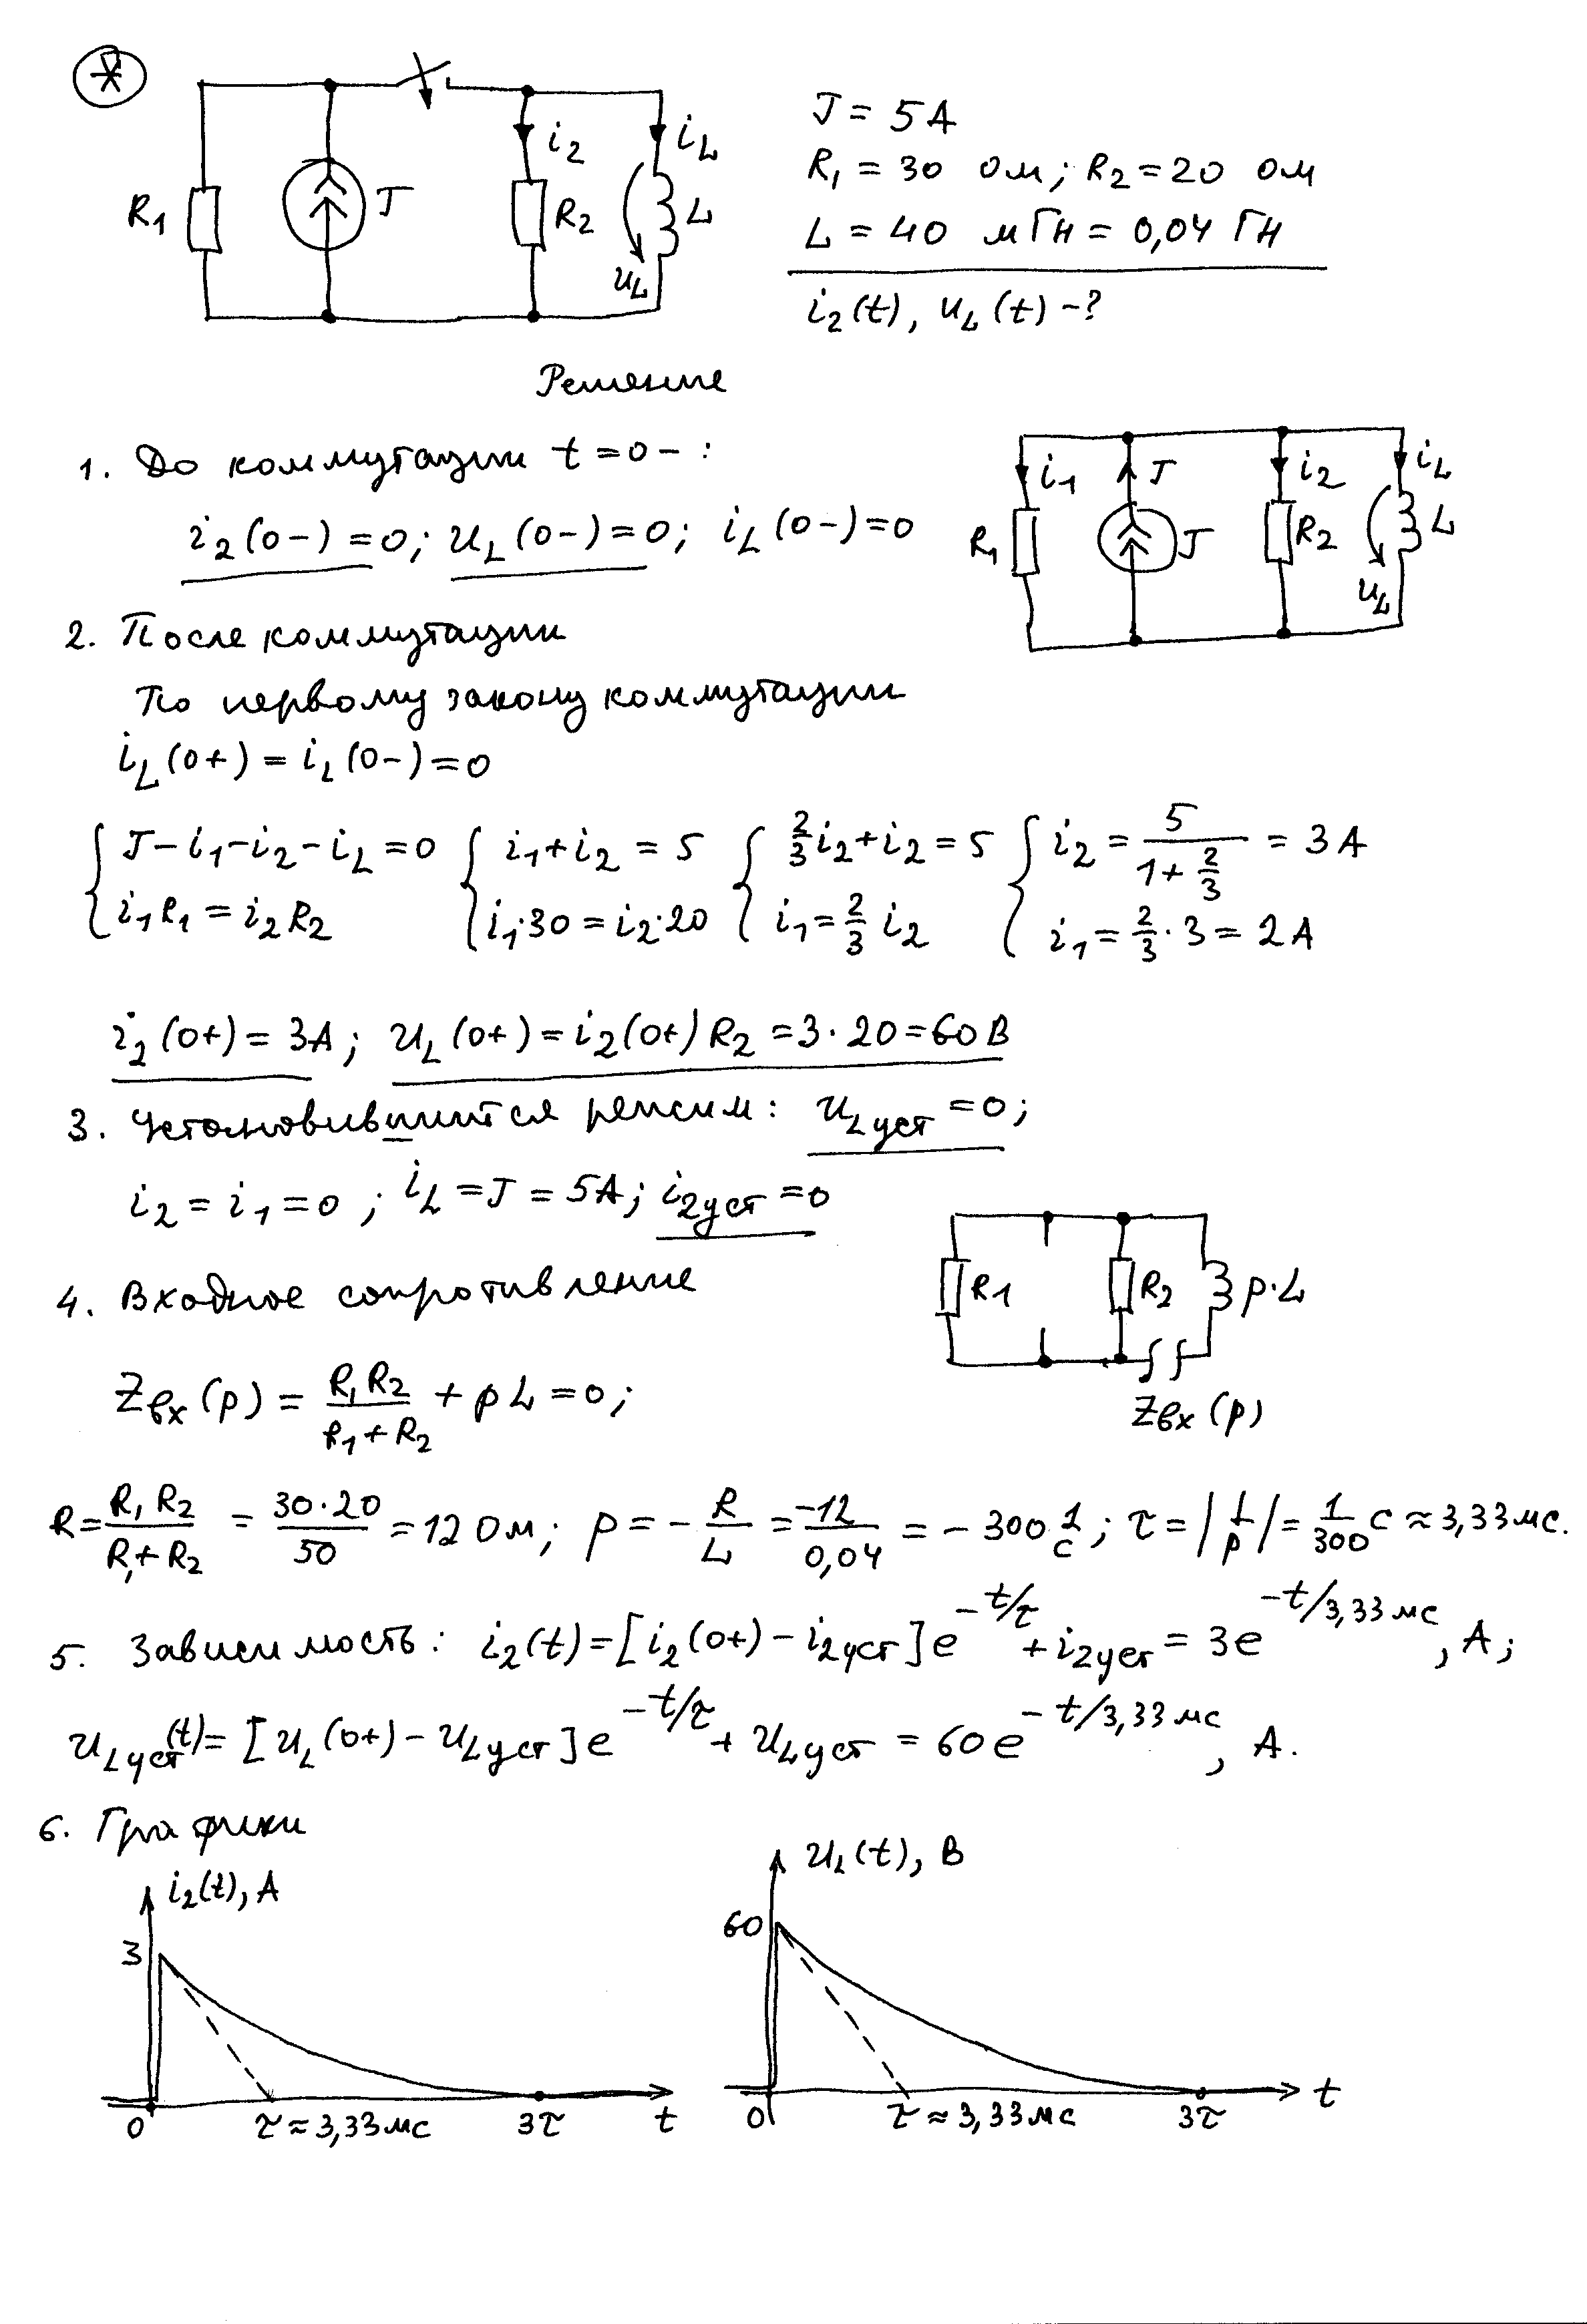 *
R₁
J
i₂
R₂
i_L
L
u_L
J = 5 А
R₁ = 30 Ом; R₂ = 20 Ом
L = 40 мГн = 0,04 Гн
i₂(t), u_L(t) - ?
Решение
1. До коммутации t = 0- :
i₂(0-) = 0; u_L(0-) = 0; i_L(0-) = 0
i₁ J i₂ i_L
R₁ J R₂ L
u_L
2. После коммутации
По первому закону коммутации
i_L(0+) = i_L(0-) = 0
{ J - i₁ - i₂ - i_L = 0 { i₁ + i₂ = 5 { 2/3 i₂ + i₂ = 5 { i₂ = 5/(1 + 2/3) = 3 А
i₁R₁ = i₂R₂ i₁·30 = i₂·20 i₁ = 2/3 i₂ i₁ = 2/3 · 3 = 2 А
i₂(0+) = 3А; u_L(0+) = i₂(0+) R₂ = 3 · 20 = 60 В
3. Установившийся режим: u_Lуст = 0;
i₂ = i₁ = 0; i_L = J = 5А; i₂уст = 0
4. Входное сопротивление
R₁ R₂ p·L
Zвх(p)
Zвх(p) = R₁R₂/(R₁ + R₂) + pL = 0;
R = R₁R₂/(R₁ + R₂) = 30·20/50 = 12 Ом; p = - R/L = -12/0,04 = - 300 1/с; τ = |1/p| = 1/300 с ≈ 3,33 мс.
5. Зависимость: i₂(t) = [i₂(0+) - i₂уст] e^(-t/τ) + i₂уст = 3e^(-t/3,33 мс), А;
u_Lуст(t) = [u_L(0+) - u_Lуст] e^(-t/τ) + u_Lуст = 60e^(-t/3,33 мс), А.
6. Графики
i₂(t), А
3
0
τ ≈ 3,33 мс
3τ
t
u_L(t), В
60
0
τ ≈ 3,33 мс
3τ
t